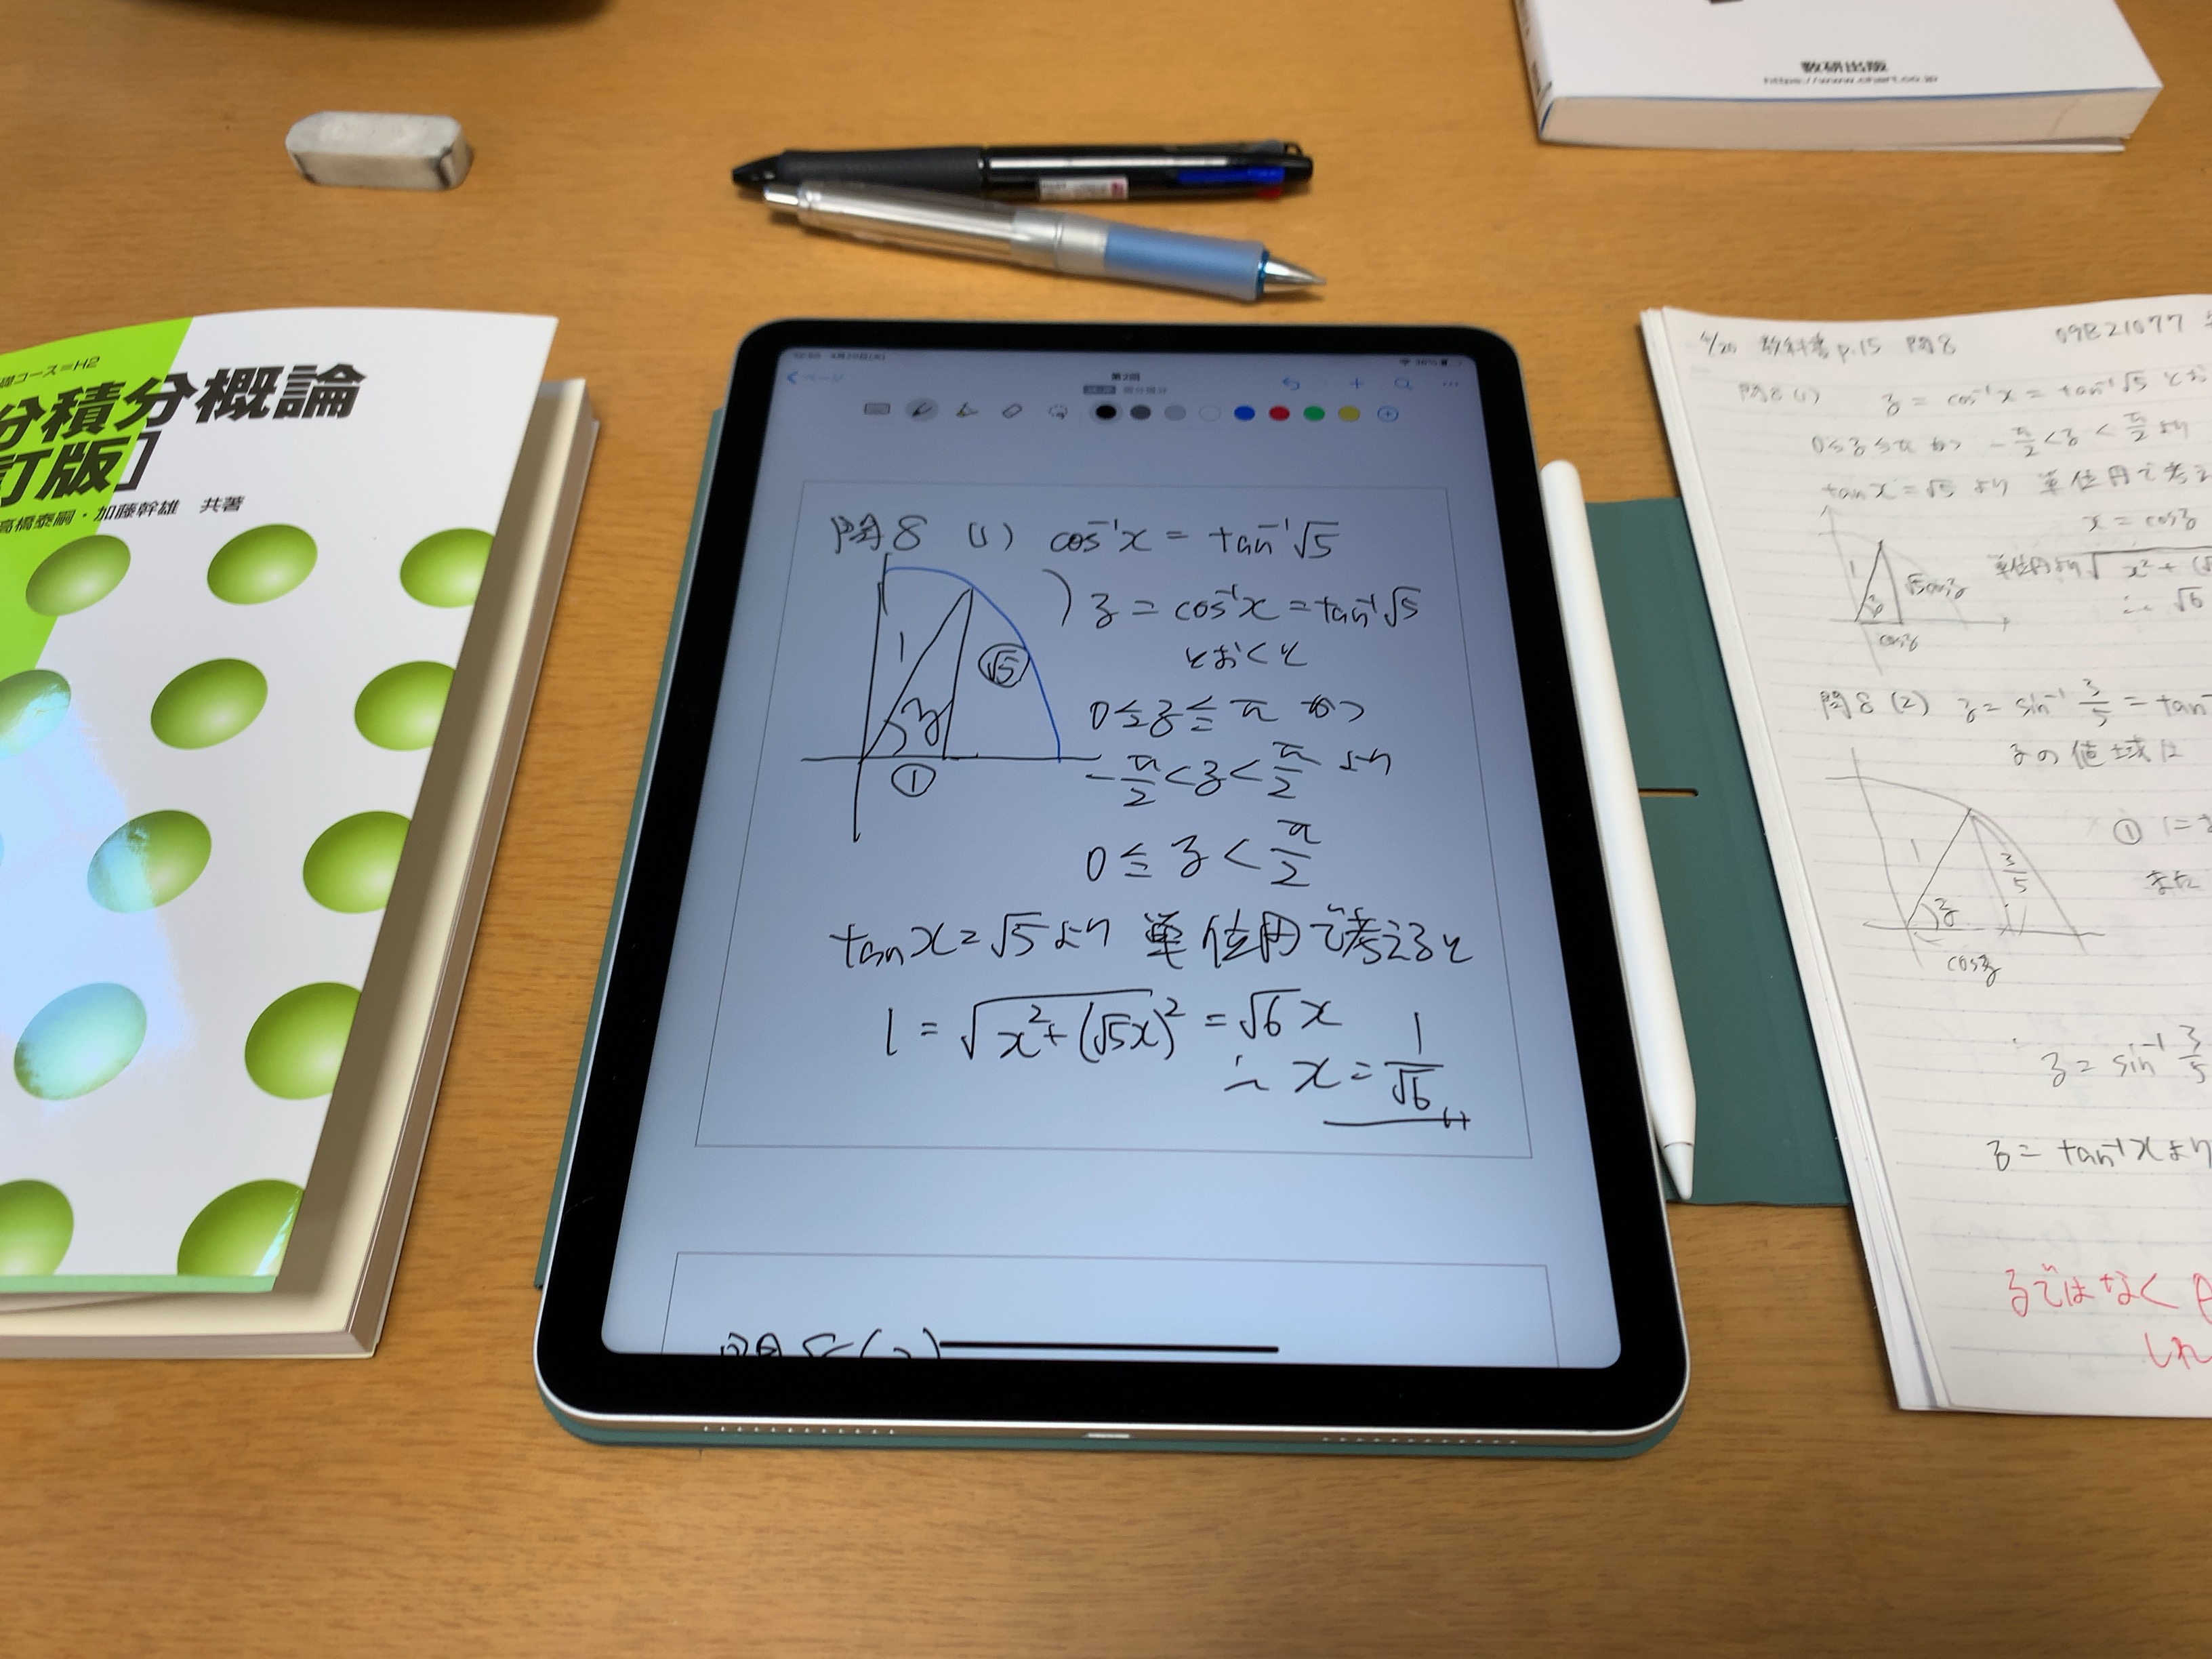 数研出版
https://www.chart.co.jp
礎コース=H2
分積分概論
訂版]
高橋泰嗣・加藤幹雄 共著
ページ
第2回
微分積分
問8 (1) cos⁻¹x = tan⁻¹√5
1
√5
z
①
) z = cos⁻¹x = tan⁻¹√5
とおくと
0 ≦ z ≦ π かつ
-π/2 < z < π/2 より
0 ≦ z < π/2
tan x = √5 より 単位円で考えると
1 = √x²+(√5x)² = √6 x
∴ x = 1/√6
4/20 教科書 p.15 問8 09B21077
問8 (1) z = cos⁻¹x = tan⁻¹√5 とお
0≦z≦π かつ -π/2 < z < π/2 より
tan x = √5 より 単位円で考え
x = cos z
1
√5cosz
z
cosz
単位円より√x²+(√
∴ √6
問8 (2) z = sin⁻¹ 3/5 = tan⁻
zの値域は
1
3/5
z
cosz
① 1 =
また
z = sin⁻¹ 3/5
z = tan⁻¹x より
zではなく